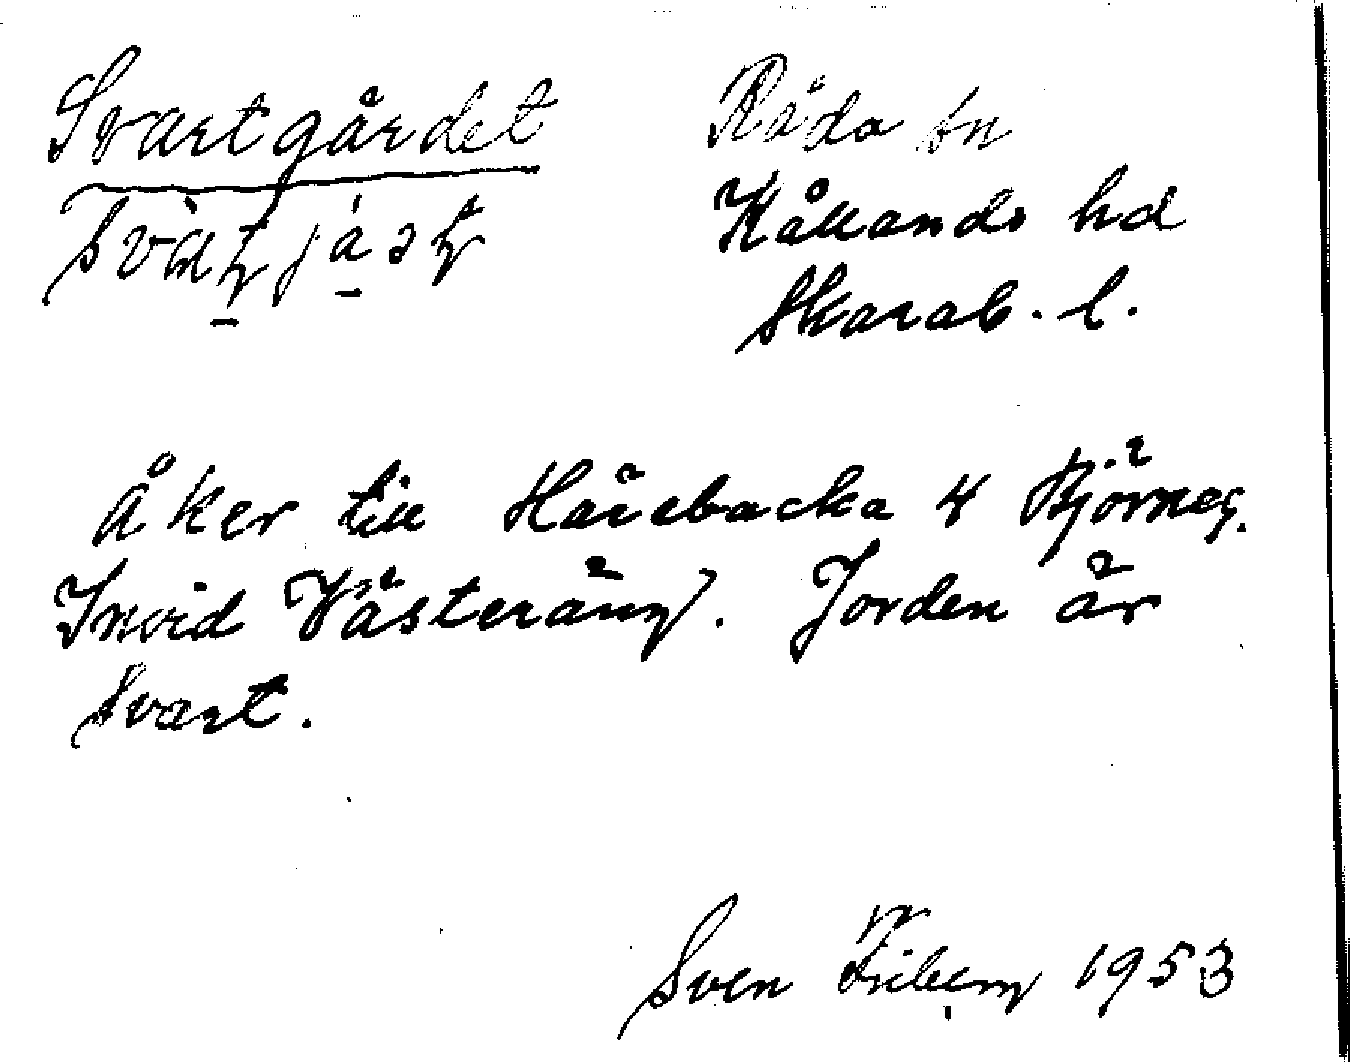 Svartgärdet
Råda sn
Kållands hd
Skarab. l.
Åker till Häsebacka 4 Björneg.
Invid Västeräng. Jorden är
svart.
Sven Friberg 1953